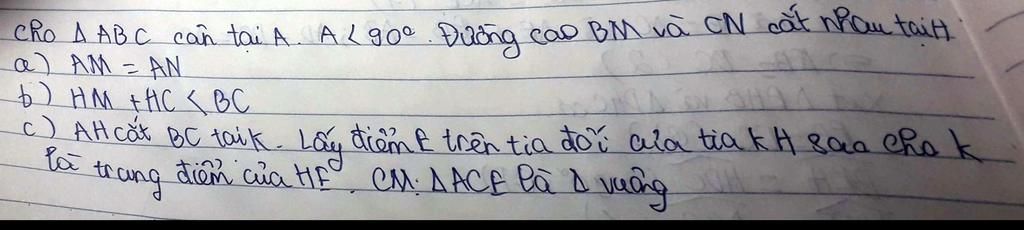 cho Δ ABC cân tại A. A < 90°. Đường cao BM và CN cắt nhau tại H.
a) AM = AN
b) HM + HC < BC
c) AH cắt BC tại K. Lấy điểm E trên tia đối của tia KH sao cho K
là trung điểm của HE. CM: ΔACE là Δ vuông